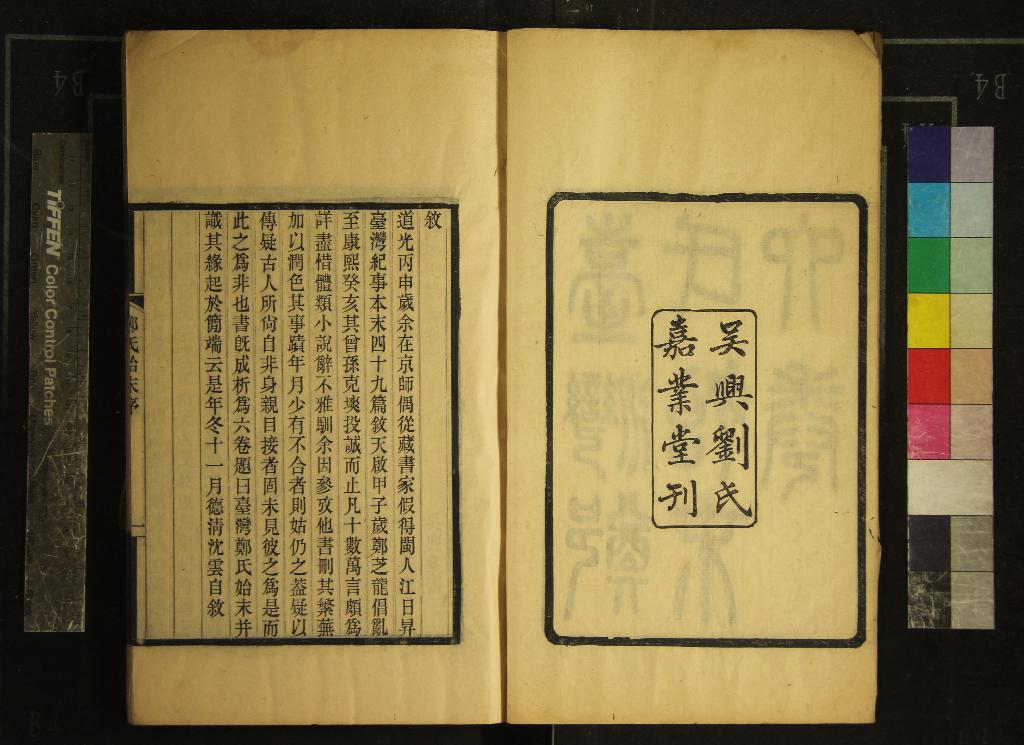 吳興劉氏
嘉業堂刊
敘
道光丙申歲余在京師偶從藏書家假得閩人江日昇
臺灣紀事本末四十九篇敘天啟甲子歲鄭芝龍倡亂
至康熙癸亥其曾孫克塽投誠而止凡十數萬言頗為
詳盡惜體類小說辭不雅馴余因參攷他書刪其繁蕪
加以潤色其事蹟年月少有不合者則姑仍之葢疑以
傳疑古人所尙自非身親目接者固未見彼之為是而
此之為非也書旣成析為六卷題曰臺灣鄭氏始末并
識其緣起於簡端云是年冬十一月德清沈雲自敘
鄭氏始末序
一
TIFFEN Color Control Patches
B4
B4